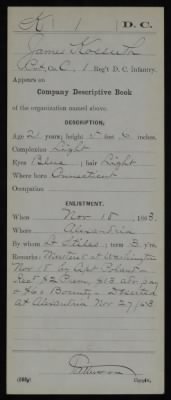 K | 1 | D. C.
James Kossuth
Co. C, 1 Reg't D. C. Infantry.
Appears on
Company Descriptive Book
of the organization named above.
DESCRIPTION.
Age 21 years; height 5 feet 6 inches.
Complexion Light
Eyes Blue; hair Light
Where born Connecticut
Occupation
ENLISTMENT.
When Nov 18, 1863.
Where Alexandria
By whom Stiles; term 3 y'rs.
Remarks: Mustered at Washington
Nov 18 by Capt
Rec'd $2 Prem, $13 adv. pay
& Bounty - Deserted
at Alexandria Nov 27/63
Copyist.